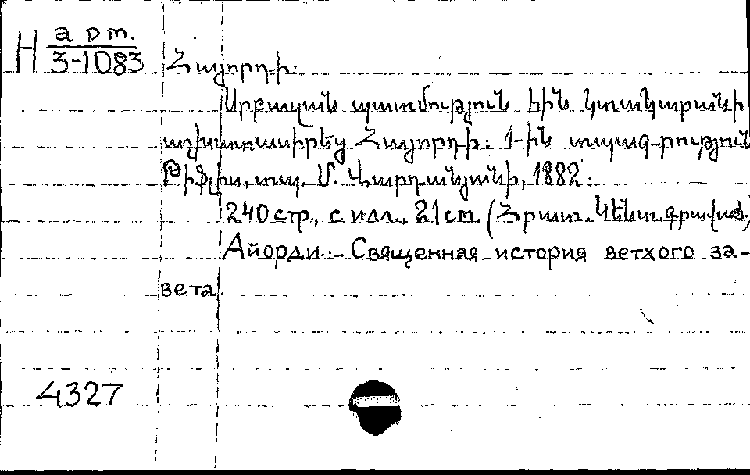 H арт.
3-1083
Հայորդի.
Սրբազան պատմություն հին կտակարանի
աշխատասիրեց Հայորդի: 1-ին տպագրություն
Թիֆլիս, տպ. Մ. Վարդանյանի, 1882:
240 стр., с илл. 21 см. (Հրատ. Կենտ. գրավաճ.)
Айорди. Священная история ветхого за-
вета.
4327